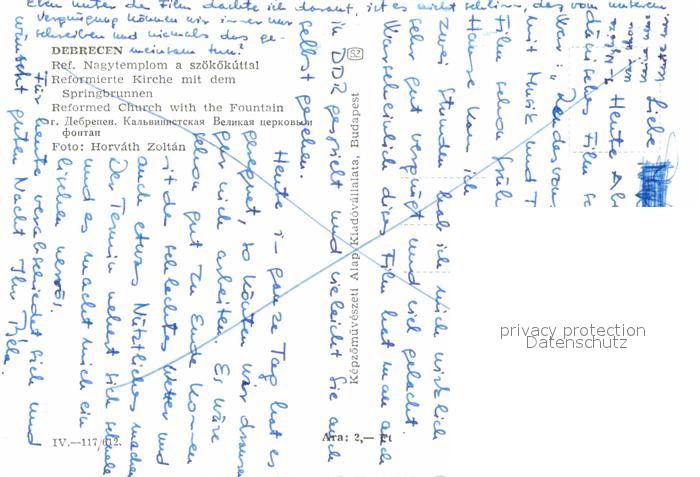 Eben unter der Film dachte ich daraut, ist es nicht schlimm, das von unseren
Vergnügung können wir immer nur
schreiben und niemals das ge-
meinsam tun?
DEBRECEN
Ref. Nagytemplom a szökőkúttal
Reformierte Kirche mit dem
Springbrunnen
Reformed Church with the Fountain
г. Дебрецен. Кальвинистская Великая церковь и
фонтан
Foto: Horváth Zoltán
IV.—117/612.
Ára: 2,— Ft
Képzőművészeti Alap Kiadóvállalata, Budapest
SZ
Liebe
Heute Ab
Film
war: „Rendesvou
mit Musik und T
Film schon früh
Hause kam ich
zwei Stunden hab ich mich wirklich
sehr gut vergnügt und viel gelacht
Warscheinlich dises Film hat man auch
in DDR gespielt und vieleicht Sie auch
selbst gesehen.
Heute in ganze Tag hat es
geregnet, so könnten wir draussen
gar nich arbeiten. Es wäre
schon gut zu Ende kommen
ist de schlechtes Wetter und
auch etwas Nützliches machen
Der Termin nehert sich schnele
und es macht mich ein
bischen nervös.
Für heute verabschiedet sich und
wünscht guten Nacht Ihr Béla.
privacy protection
Datenschutz